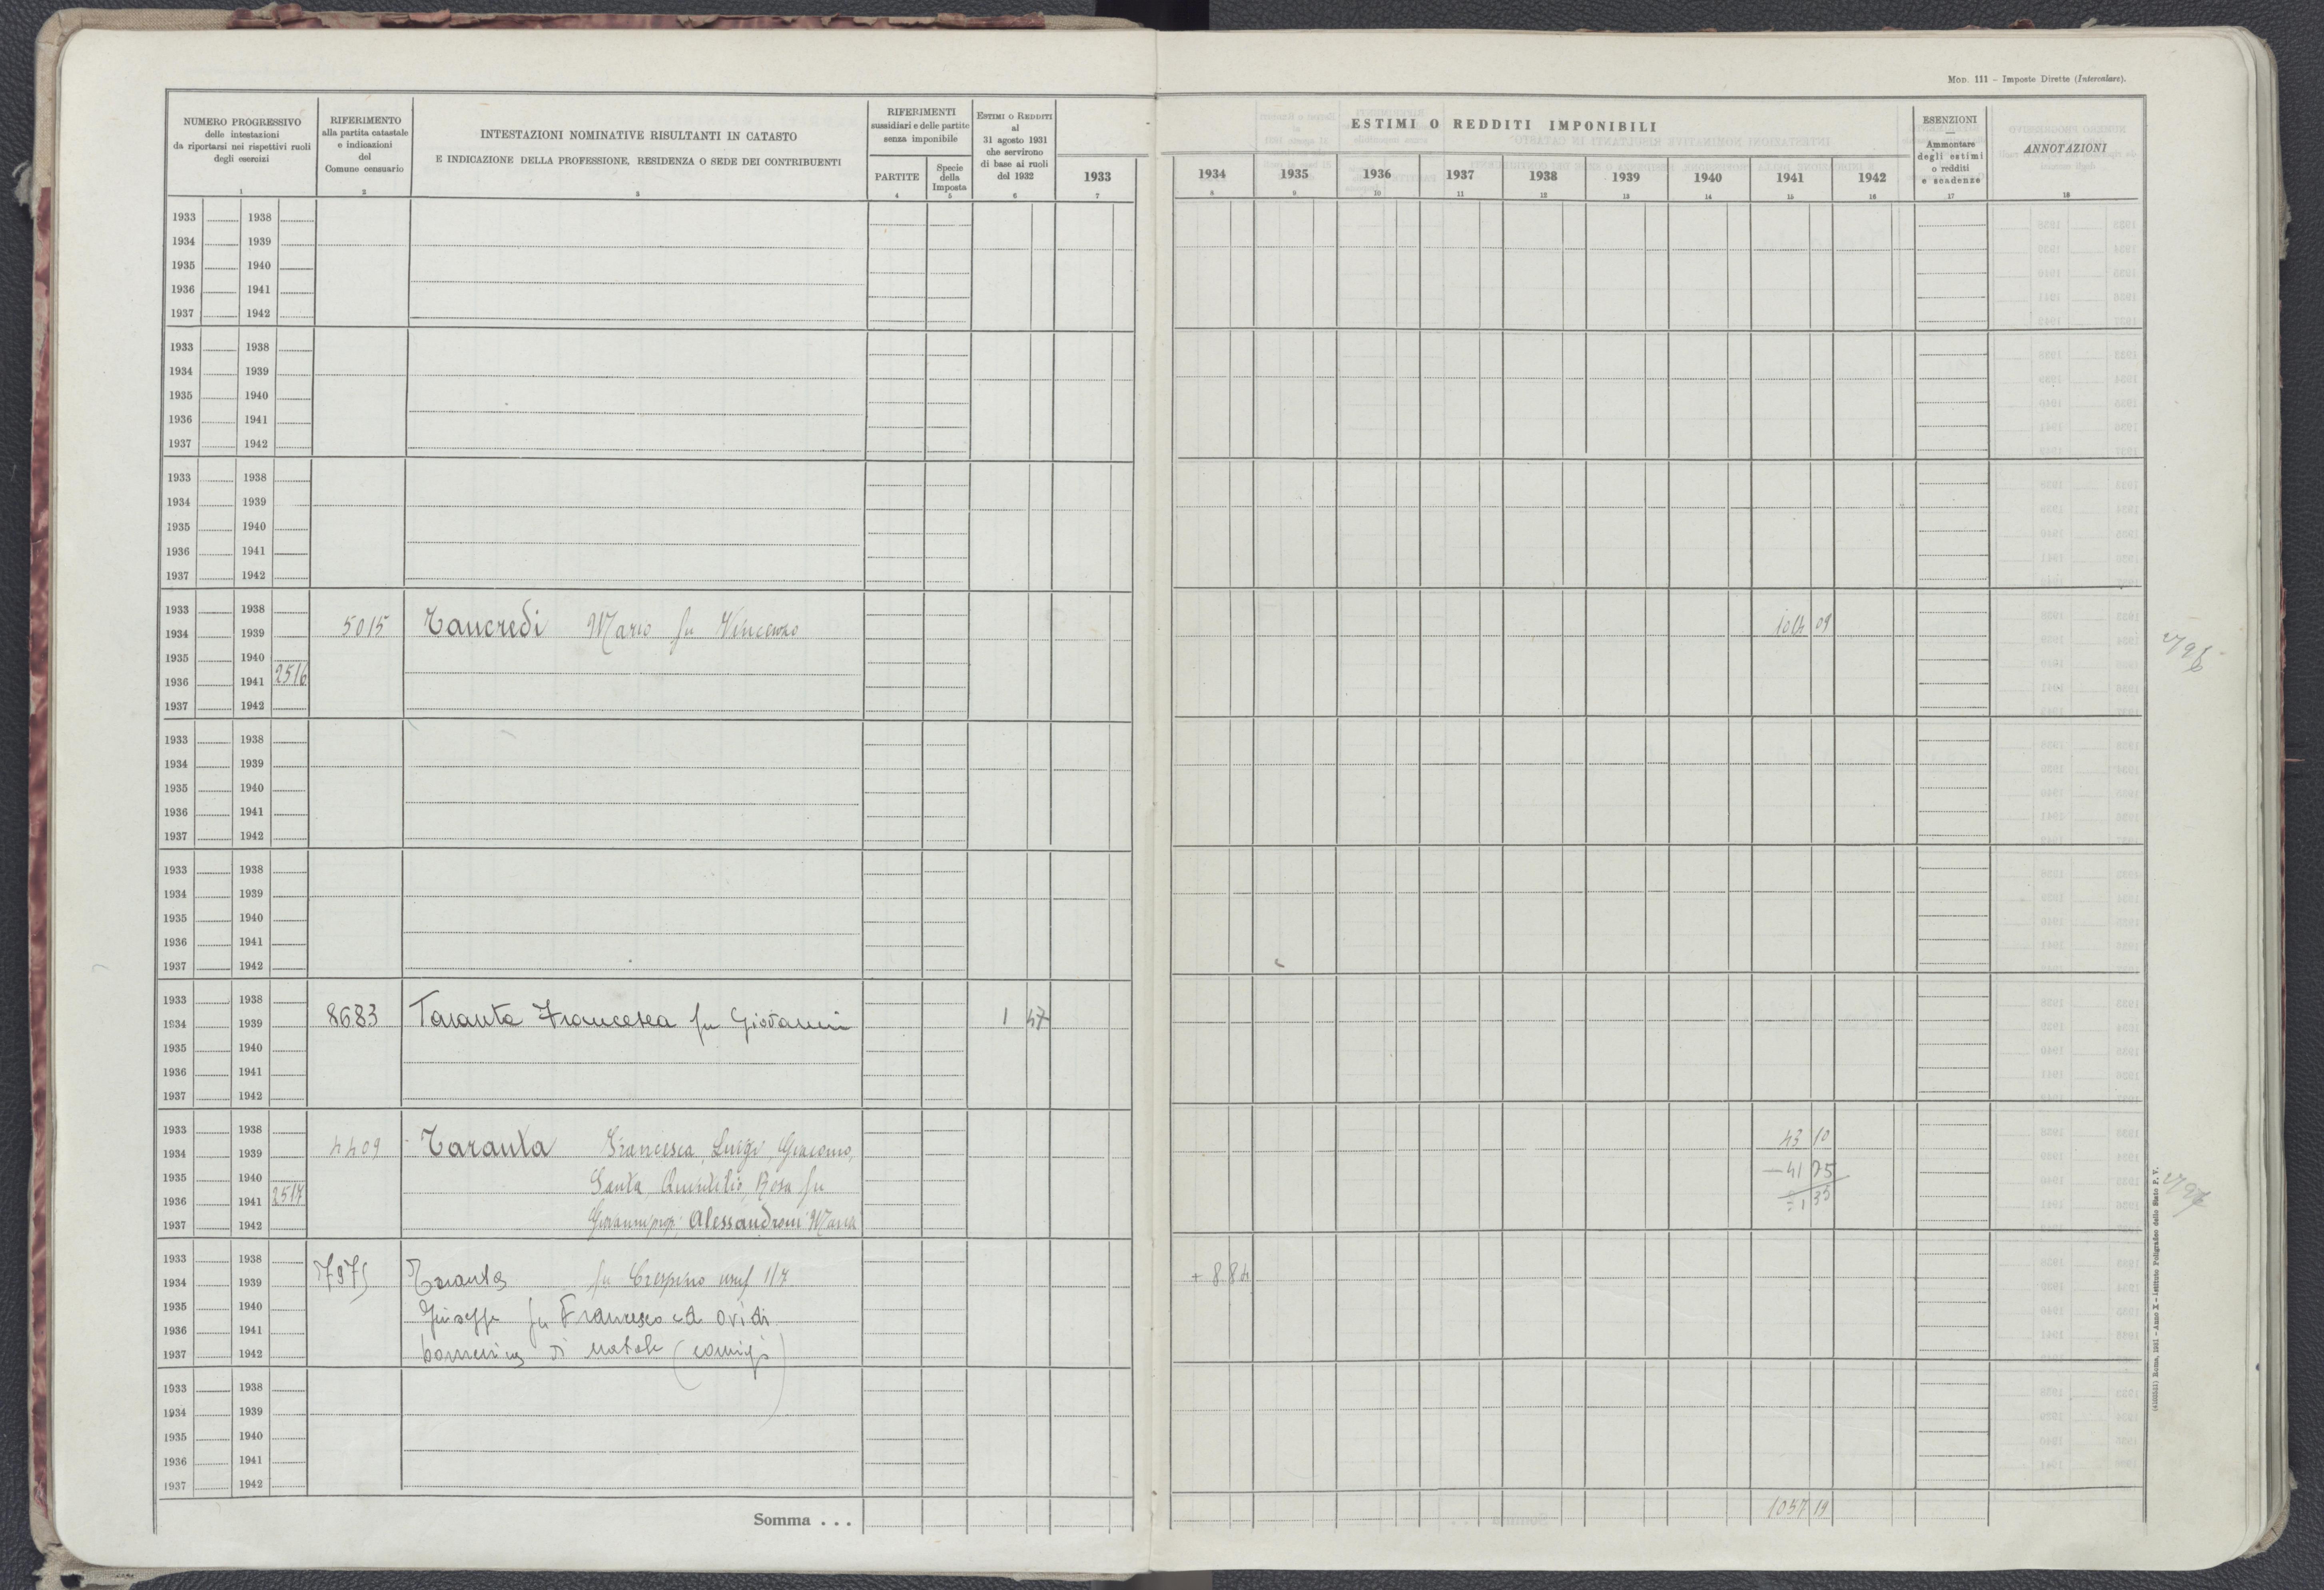 MOD. 111 – Imposte Dirette (Intercalare).
NUMERO PROGRESSIVO
delle intestazioni
da riportarsi nei rispettivi ruoli
degli esercizi
1
RIFERIMENTO
alla partita catastale
e indicazioni
del
Comune censuario
2
INTESTAZIONI NOMINATIVE RISULTANTI IN CATASTO
E INDICAZIONE DELLA PROFESSIONE, RESIDENZA O SEDE DEI CONTRIBUENTI
3
RIFERIMENTI
sussidiari e delle partite
senza imponibile
PARTITE
4
Specie
della
Imposta
5
ESTIMI O REDDITI
al
31 agosto 1931
che servirono
di base ai ruoli
del 1932
6
ESTIMI O REDDITI IMPONIBILI
1933 1934 1935 1936 1937 1938 1939 1940 1941 1942
7 8 9 10 11 12 13 14 15 16
ESENZIONI
—
Ammontare
degli estimi
o redditi
e scadenze
17
ANNOTAZIONI
18
1933 1938
1934 1939
1935 1940
1936 1941
1937 1942
1933 1938
1934 1939
1935 1940
1936 1941
1937 1942
1933 1938
1934 1939
1935 1940
1936 1941
1937 1942
1933 1938
1934 1939 5015 Tancredi Mario fu Vincenzo 1014 09
1935 1940
1936 1941 2516
1937 1942
1933 1938
1934 1939
1935 1940
1936 1941
1937 1942
1933 1938
1934 1939
1935 1940
1936 1941
1937 1942
1933 1938
1934 1939 8683 Taranta Francesca fu Giovanni 1 47
1935 1940
1936 1941
1937 1942
1933 1938 43 10
1934 1939 4409 Taranta Francesca, Luigi, Giacomo,
1935 1940 Santa, Quintilio, Rosa fu — 41 75
1936 1941 2517 1 35
1937 1942 Giovanni prop; Alessandroni Maria
1933 1938
1934 1939 7975 Taranta fu Crespino usuf 1/7 + 8.84
1935 1940 Giuseppe fu Francesco ed Ovidi
1936 1941
1937 1942 di Natale (coniugi)
1933 1938
1934 1939
1935 1940
1936 1941
1937 1942
Somma . . . 1057 19
Roma, 1931 – Anno X – Istituto Poligrafico dello Stato P. V.